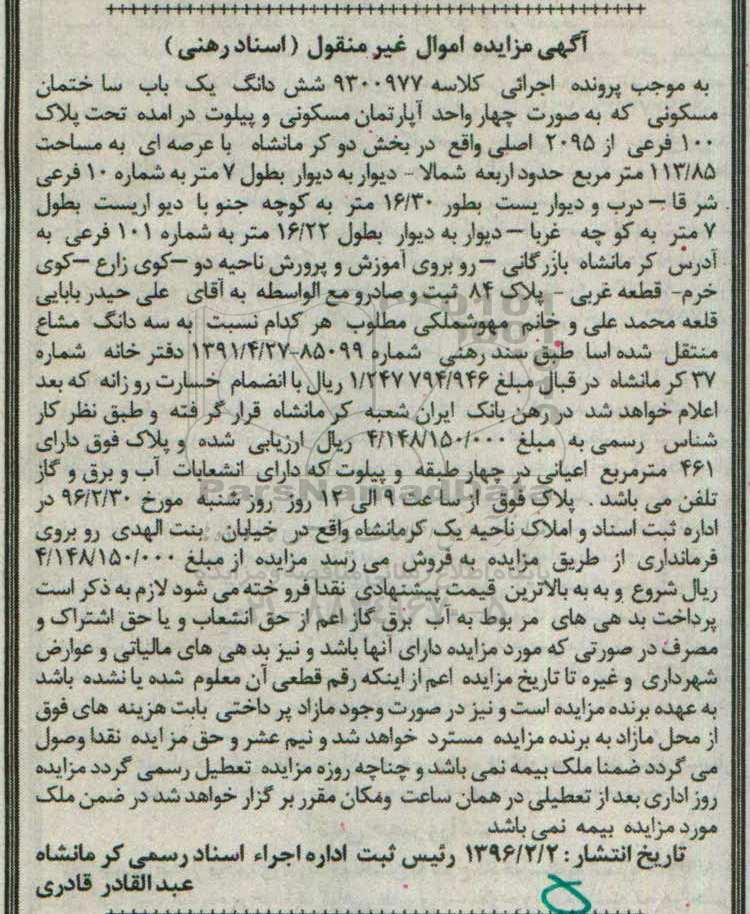 آگهی مزایده اموال غیر منقول (اسناد رهنی)
به موجب پرونده اجرائی کلاسه ۹۳۰۰۹۷۷ شش دانگ یک باب سا ختمان
مسکونی که به صورت چهار واحد آپارتمان مسکونی و پیلوت در امده تحت پلاک
۱۰۰ فرعی از ۲۰۹۵ اصلی واقع در بخش دو کر مانشاه با عرصه ای به مساحت
۱۱۳/۸۵ متر مربع حدود اربعه شمالا - دیوار به دیوار بطول ۷ متر به شماره ۱۰ فرعی
شر قا – درب و دیوار یست بطور ۱۶/۳۰ متر به کوچه جنو با دیو اریست بطول
۷ متر به کو چه غربا – دیوار به دیوار بطول ۱۶/۲۲ متر به شماره ۱۰۱ فرعی به
آدرس کر مانشاه بازرگانی – رو بروی آموزش و پرورش ناحیه دو –کوی زارع –کوی
خرم- قطعه غربی - پلاک ۸۴ ثبت و صادرو مع الواسطه به آقای علی حیدر بابایی
قلعه محمد علی و خانم مهوشملکی مطلوب هر کدام نسبت به سه دانگ مشاع
منتقل شده اسا طبق سند رهنی شماره ۸۵۰۹۹-۱۳۹۱/۴/۲۷ دفتر خانه شماره
۳۷ کر مانشاه در قبال مبلغ ۱/۲۴۷ ۷۹۴/۹۴۶ ریال با انضمام خسارت روزانه که بعد
اعلام خواهد شد در رهن بانک ایران شعبه کر مانشاه قرار گر فته و طبق نظر کار
شناس رسمی به مبلغ ۴/۱۴۸/۱۵۰/۰۰۰ ریال ارزیابی شده و پلاک فوق دارای
۴۶۱ مترمربع اعیانی در چهار طبقه و پیلوت که دارای انشعابات آب و برق و گاز
تلفن می باشد . پلاک فوق از سا عت ۹ الی ۱۲ روز روز شنبه مورخ ۹۶/۲/۳۰ در
اداره ثبت اسناد و املاک ناحیه یک کرمانشاه واقع در خیابان بنت الهدی رو بروی
فرمانداری از طریق مزایده به فروش می رسد مزایده از مبلغ ۴/۱۴۸/۱۵۰/۰۰۰
ریال شروع و به به بالاترین قیمت پیشنهادی نقدا فرو خته می شود لازم به ذکر است
پرداخت بد هی های مر بوط به آب برق گاز اعم از حق انشعاب و یا حق اشتراک و
مصرف در صورتی که مورد مزایده دارای آنها باشد و نیز بد هی های مالیاتی و عوارض
شهرداری و غیره تا تاریخ مزایده اعم از اینکه رقم قطعی آن معلوم شده یا نشده باشد
به عهده برنده مزایده است و نیز در صورت وجود مازاد پر داختی بابت هزینه های فوق
از محل مازاد به برنده مزایده مسترد خواهد شد و نیم عشر و حق مز ایده نقدا وصول
می گردد ضمنا ملک بیمه نمی باشد و چناچه روزه مزایده تعطیل رسمی گردد مزایده
روز اداری بعد از تعطیلی در همان ساعت ومکان مقرر بر گزار خواهد شد در ضمن ملک
مورد مزایده بیمه نمی باشد
تاریخ انتشار : ۱۳۹۶/۲/۲ رئیس ثبت اداره اجراء اسناد رسمی کر مانشاه
عبدالقادر قادری
ParsNamadData